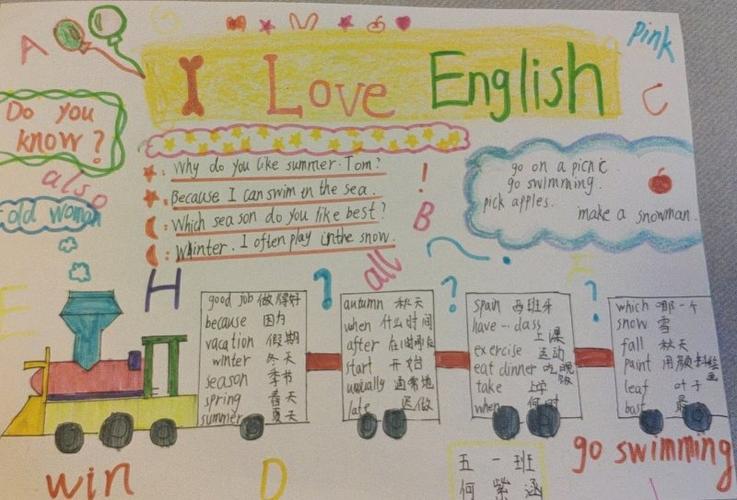 I Love English
pink
A
C
Do you
know?
also
old woman
Why do you like summer. Tom?
Because I can swim in the sea.
Which season do you like best?
Winter. I often play in the snow.
!
B
go on a picnic.
go swimming.
pick apples.
make a snowman.
E
H
?
all
?
E
?
good job 做得好
because 因为
vacation 假期
winter 冬天
season 季节
spring 春天
summer 夏天
autumn 秋天
when 什么时间
after
start 开始
usually 通常地
late
spain 西班牙
have - class 上课
exercise 运动
eat dinner 吃晚饭
take
when 何时
which 哪一个
snow 雪
fall 秋天
paint 用颜料绘画
leaf 叶子
best 最
win
D
五一班
何紫涵
go swimming